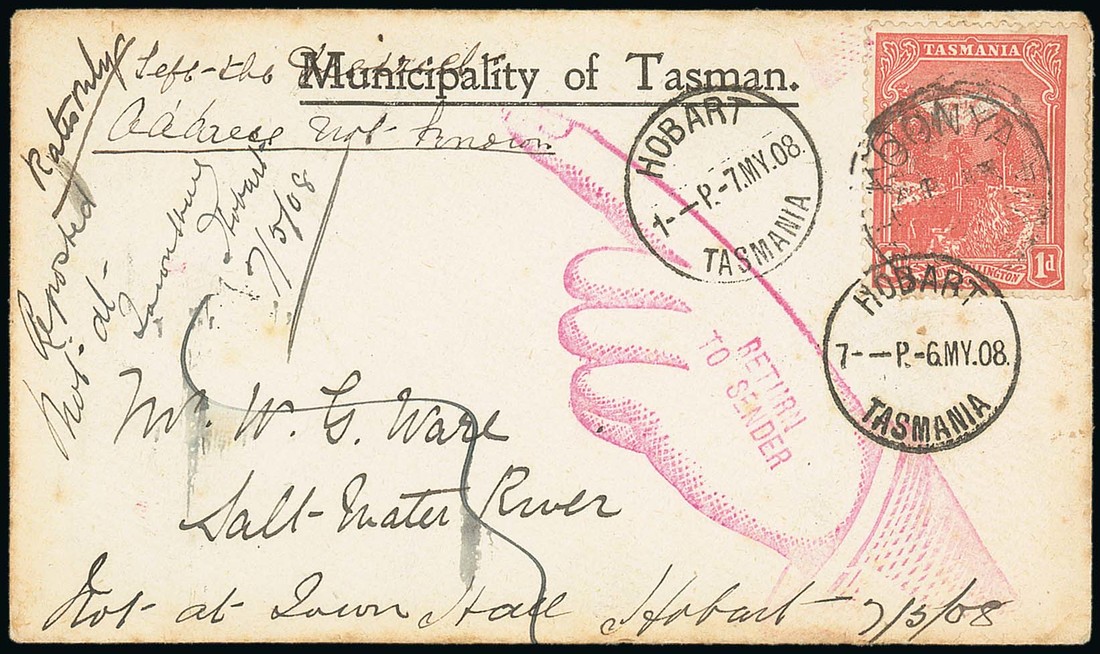 Municipality of Tasman.
Left the District
Address not known
Reposted Rates only
Not at
Hobart
7/5/08
TASMANIA
KOONYA
1d
HOBART
1--P.-7.MY.08.
TASMANIA
HOBART
7--P.-6.MY.08.
TASMANIA
RETURN
TO SENDER
Mr. W. G. Ware
Salt-Water River
Not at Town Hall Hobart 7/5/08